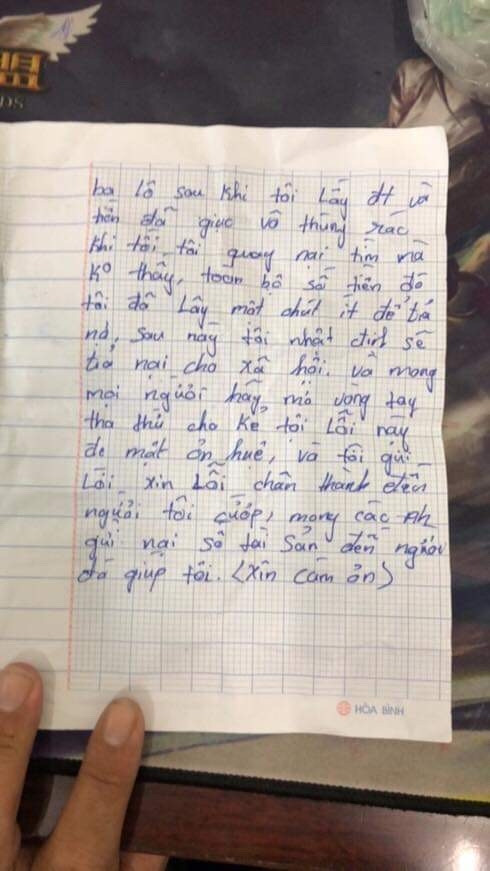 ba lô sau khi tôi Lấy đt và
tiền đã giục vô thùng rác
khi tôi tôi quay nại tìm mà
Kº thấy, toan bộ số tiền đó
tôi đã Lấy một chút ít để trả
nợ, sau này tôi nhất định sẽ
trả nại cho xã hội. và mong
mọi người hãy mở vòng tay
tha thứ cho kẻ tội Lỗi này
để mất ơn huệ, và tôi gửi
Lời xin Lỗi chân thành đến
người tôi cướp, mong các anh
gửi nại số tài sản đến người
đã giúp tôi. (xin cảm ơn)
HÒA BÌNH